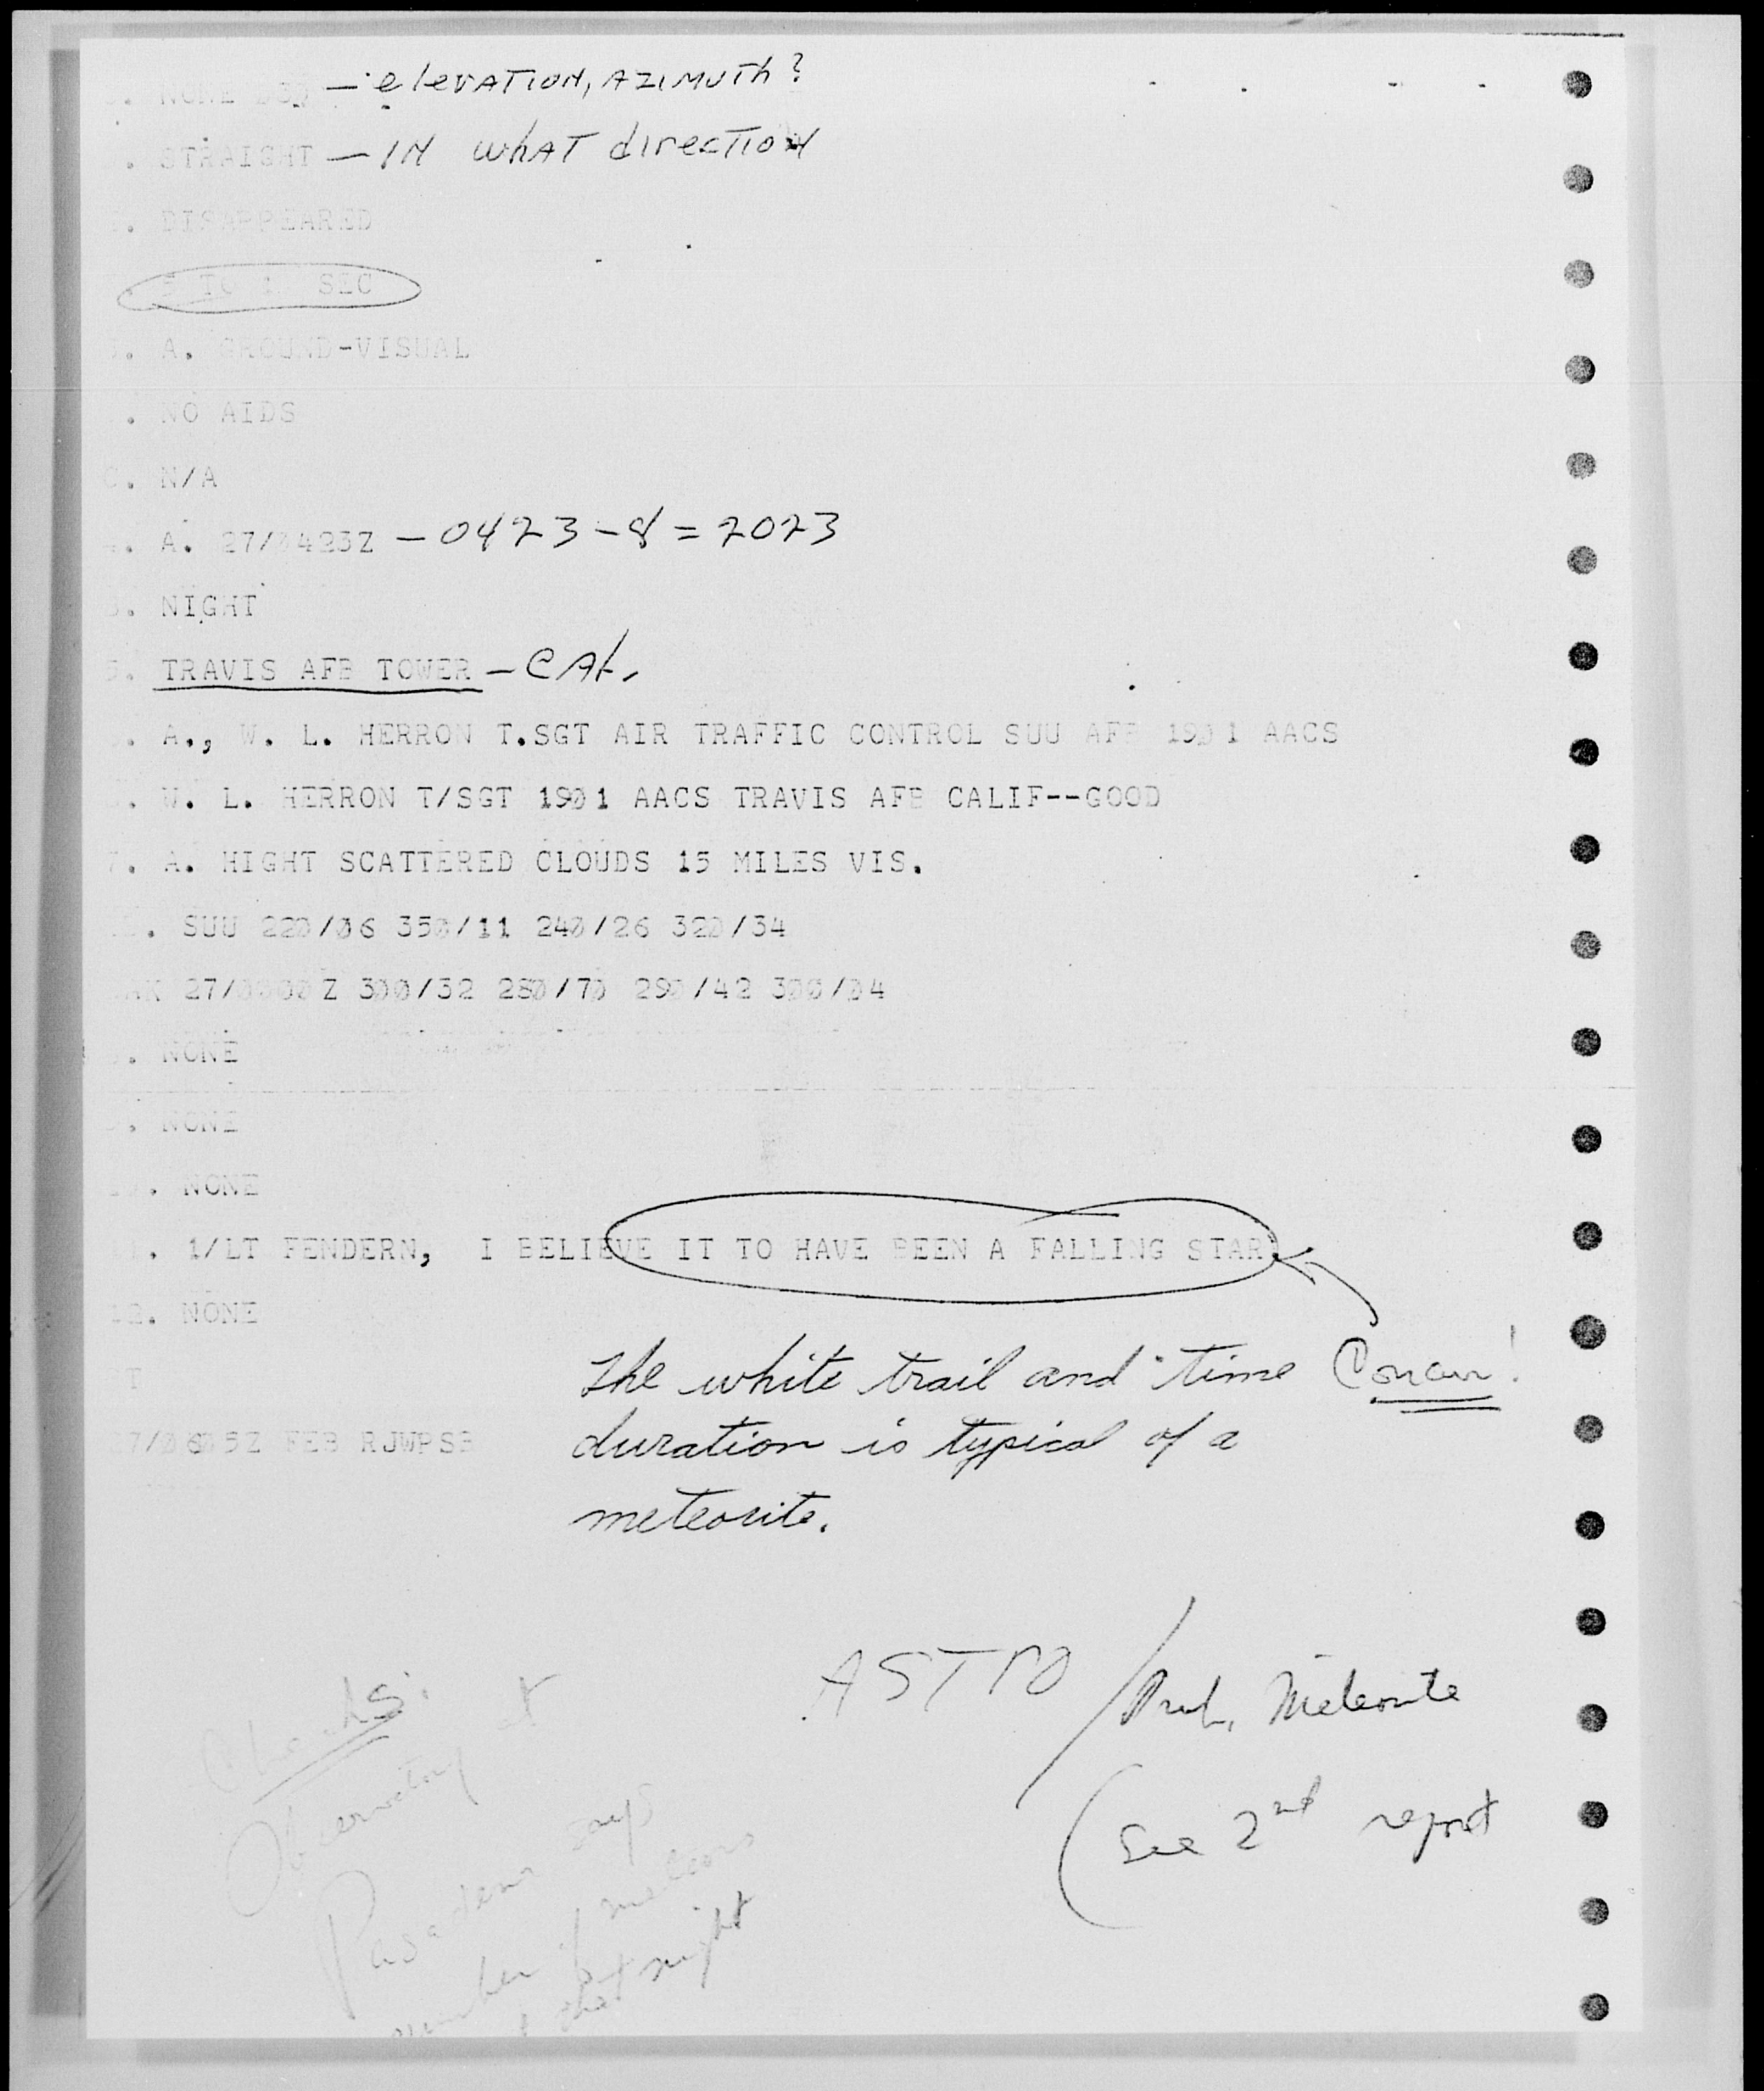 . NONE — elevation, azimuth?
. STRAIGHT — in what direction
. DISAPPEARED
5 TO 1 SEC
. A. GROUND-VISUAL
. NO AIDS
C. N/A
. A. 27/0423Z — 0423 - 8 = 2023
. NIGHT
5. TRAVIS AFB TOWER — CAL.
. A., W. L. HERRON T.SGT AIR TRAFFIC CONTROL SUU AFB 1901 AACS
. W. L. HERRON T/SGT 1901 AACS TRAVIS AFB CALIF--GOOD
7. A. HIGHT SCATTERED CLOUDS 15 MILES VIS.
. SUU 220/06 350/11 240/26 320/34
27/0000Z 300/32 280/70 290/42 300/04
. NONE
. NONE
. NONE
. 1/LT FENDERN, I BELIEVE IT TO HAVE BEEN A FALLING STAR.
12. NONE
The white trail and time Concur!
T
duration is typical of a
27/0605Z FEB RJWPSB
meteorite.
ASTRO / Prob. Meteorite
(See 2nd report
Checks:
Observatory at
Pasadena says
number of meteors
that night